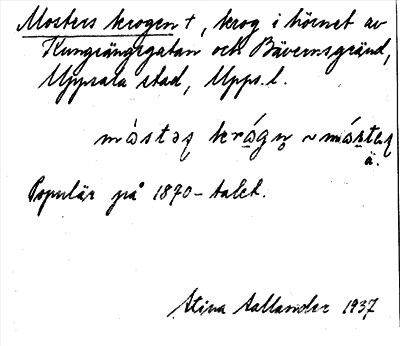 Mosters krogen †, krog i hörnet av
Kungsängsgatan och Bävernsgränd,
Uppsala stad, Upps. l.
mòstəʂ krógn̥ ~ móʂtəʂ
ä.
Populär på 1870-talet.
Stina Hallander 1937